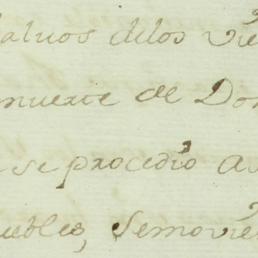 salvos delos Vie
muerte de Don
se procedio a
uebles, Semovie